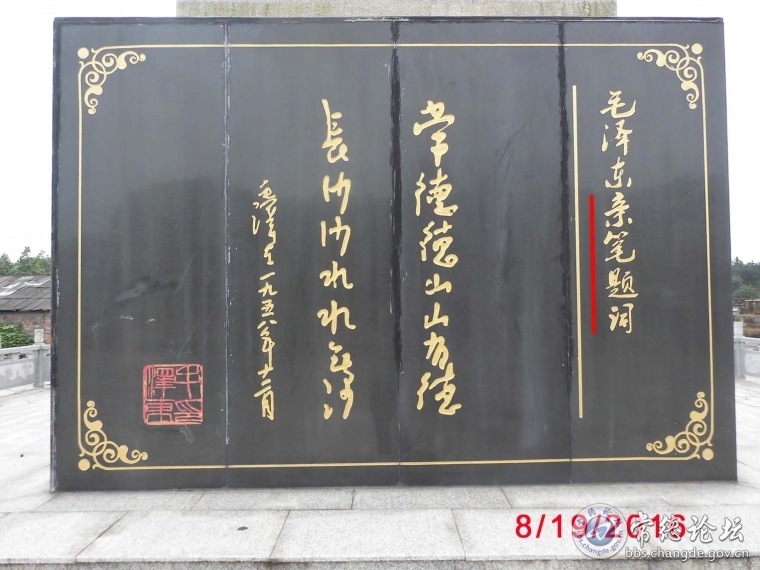 毛泽东亲笔题词
常德德山山有德
長沙沙水水無沙
一九五八年十二月
毛澤東印
8/19/2016
常德论坛
bbs.changde.gov.cn